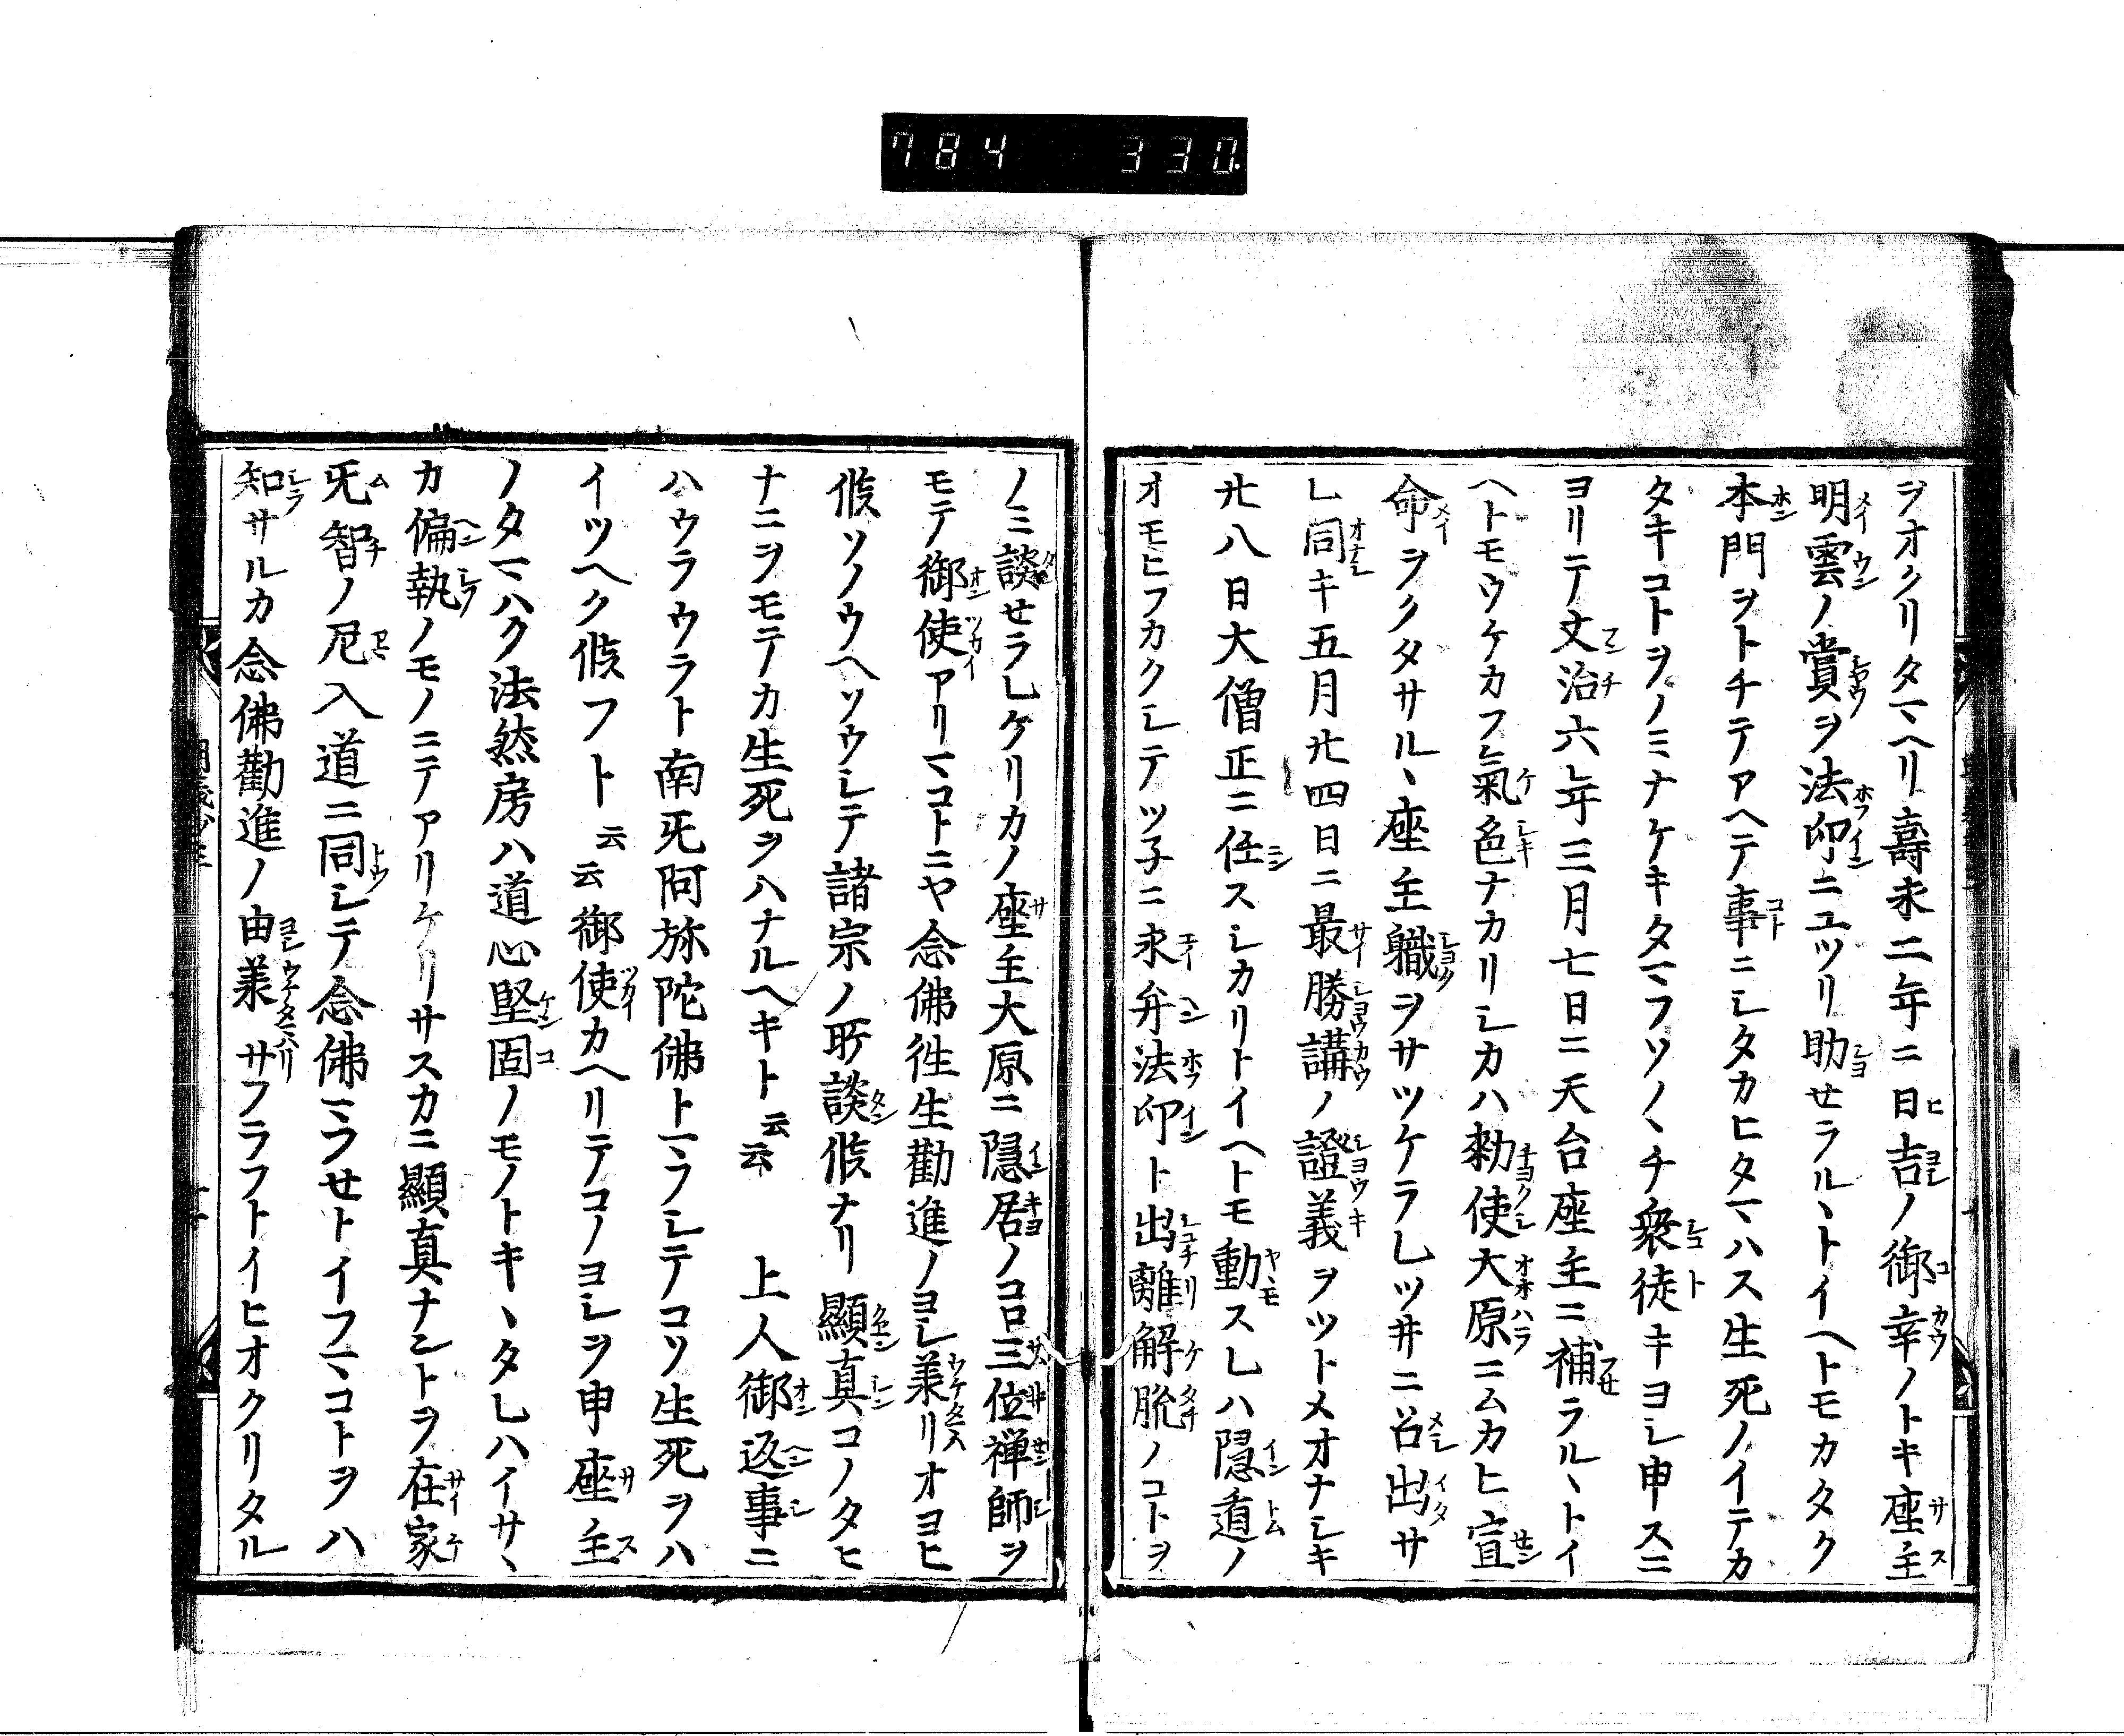 784 330
ヲオクリタマヘリ壽永二年ニ日吉ノ御幸ノトキ座主
明雲ノ賞ヲ法印ニユツリ助セラルヽトイヘトモカタク
本門ヲトチテアヘテ事ニシタカヒタマハス生死ノイテカ
タキコトヲノミナケキタマフソノヽチ衆徒キヨシ申スニ
ヨリテ文治六年三月七日ニ天台座主ニ補ラルヽトイ
ヘトモウケカフ氣色ナカリシカハ勅使大原ニムカヒ宣
命ヲクタサルヽ座主職ヲサツケラレツ井ニ召出サ
レ同キ五月廿四日ニ最勝講ノ證義ヲツトメオナシキ
廿八日大僧正ニ任スシカリトイヘトモ動スレハ隠遁ノ
オモヒフカクシテツ子ニ永弁法印ト出離解脱ノコトヲ
ノミ談セラレケリカノ座主大原ニ隠居ノコロ三位禅師ヲ
モテ御使アリマコトニヤ念佛徃生勸進ノヨシ羕リオヨヒ
候ソノウヘソウシテ諸宗ノ所談候ナリ顯真コノタヒ
ナニヲモテカ生死ヲハナルヘキト云云 上人御返事ニ
ハウラウラト南旡阿弥陀佛トマフシテコソ生死ヲハ
イツヘク候フト云云御使カヘリテコノヨシヲ申座主
ノタマハク法然房ハ道心堅固ノモノトキヽタレハイサヽ
カ偏執ノモノニテアリケリサスカニ顯真ナントヲ在家
旡智ノ尼入道ニ同シテ念佛マフセトイフマコトヲハ
知サルカ念佛勸進ノ由羕サフラフトイヒオクリタル